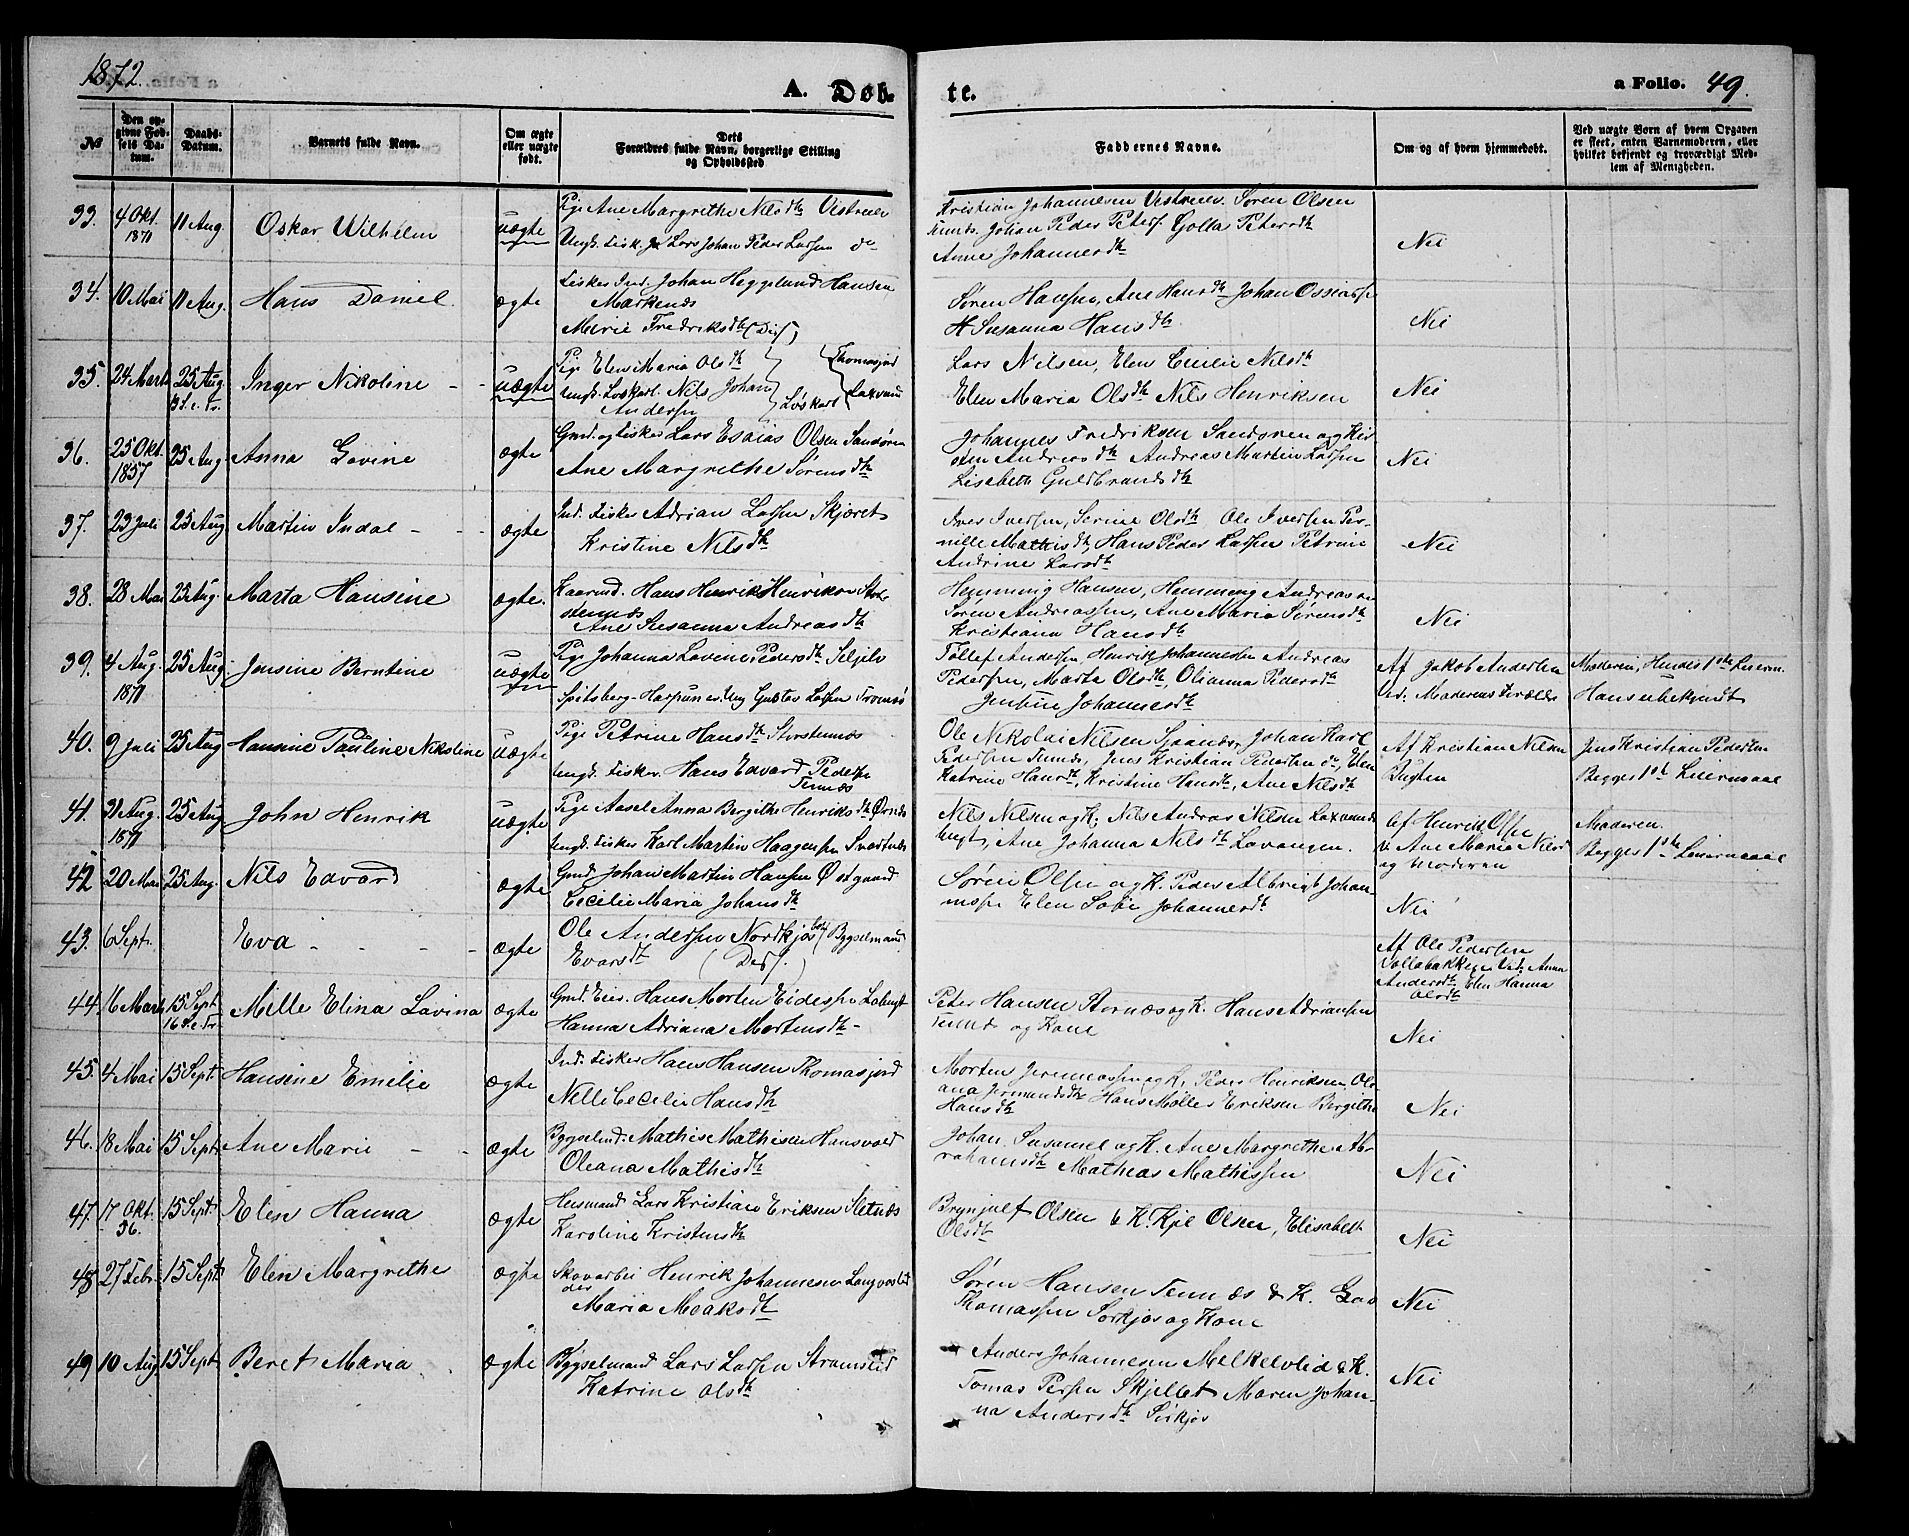 1872.
A. Døb-
te.
a Folio. 49.
No
Den op-
givne Fød-
sels Da-
tum.
Daabs-
Datum.
Barnets fulde Navn.
Om ægte
eller uægte
født.
Dets
Forældres fulde Navn, borgerlige Stilling
og Opholdssted
Faddernes Navne.
Om og af hvem hjemmedøbt.
Ved uægte Børn af hvem Opgaven
er skeet, enten Barnemoderen, eller
hvilket bekjendt og troværdigt Med-
lem af Menigheden.
33. 4 Okt. 1871 11 Aug. Oskar Wilhelm uægte
Pige Ane Margrethe Nilsdtr
Ungk. Fisk. Lars Johan Peder Larsen do
Kristian Johannesen Søren Olsen
Johan Peder Golla Petersdtr
Anne Johannesdtr
Nei
34. 10 Mai 11 Aug. Hans Daniel ægte
Fisker Ind. Johan Hegglund Hansen
Markenæs
Marie Fredriksdtr
Søren Hansen, Ane Hansdtr Johan
Susanna Hansdtr
Nei
35. 24 Mart 25 Aug. 13 S. e. Tr. Inger Nikoline uægte
Pige Elen Maria Olsdtr Thomasjord
Ungk. Løskarl. Nils Johan
Andersen Løskarl
Lars Nilsen, Elen Emilie Nilsdtr
Elen Maria Olsdtr Nils Henriksen
Nei
36. 25 Okt. 1857 25 Aug Anna Lovine ægte
Gmd. og Fisker Lars Esaias Olsen Sandøren
Ane Margrethe Sørensdtr
Johannes Fredriksen Sandøren og Kir-
sten Andreasdtr Andreas Martin Larsen
Lisabeth Guldbrandsdtr
Nei
37. 23 Juli 25 Aug Martin Indal ægte
Ind. Fisker Adrian Larsen Skjæret
Kristine Nilsdtr
Iver Iversen, Serine Olsdtr Ole Iversen Per-
nille Mathisdtr, Hans Peder Larsen Petrine
Andrine Larsdtr
Nei
38. 28 Mai 25 Aug. Marta Hansine ægte.
Hans Henrik Henriksen Stor-
stennæs
Ane Susanna Andreasdtr
Hemming Hansen, Hemming Andreasen
Søren Andreassen, Ane Maria Sørensdtr
Kristiana Hansdtr
Nei
39. 4 Aug. 1871 25 Aug. Jensine Berntine uægte
Pige Johanna Lovine Pedersdtr
Spitsberg-Harpuner Ung Gustav Larsen Tromsø
Tollef Andersen, Henrik Johannesen Andreas
Pedersen, Marta Olsdtr, Olianna Pedersdtr
Jensine Johannesdtr
Af Jakob Andersen
Moderen; Hendes 1ste Leierm.
Hans ubekjendt
40. 9 Juli 25 Aug Hansine Pauline Nikoline uægte
Pige Petrine Hansdtr Storstennæs
Ungk. Fisker. Hans Edvard Pedersen
Tennæs
Ole Nikolai Nilsen Johan Karl
Pedersen Jens Kristian Pedersen do, Elen
Katrine Hansdtr, Kristine Hansdtr, Ane Nilsdtr
Af Kristian Nilsen
Bugten
Jens Kristian Pedersen
Begges 1ste Leiermaal
41. 31 Aug. 1871 25 Aug John Henrik uægte
Pige Aasel Anna Bergithe Henriksdtr
Ungk. Fisker Karl Martin Haagensen Svartnæs
Nils Nilsen og K. Nils Andreas Nilsen
Ane Johanna Nilsdtr Lavangen.
Af Henrik Olsen
v. Ane Maria Nilsd
og Moderen
Moderen.
Begges 1ste Leiermaal
42 20 Mai 25 Aug. Nils Edvard ægte
Gmd. Johan Martin Hansen Østgaard
Cecilie Maria Johansdtr
Søren Olsen og K. Peder Albrigt Johan-
nesen Elen Sofie Johannesdtr
Nei
43. 6 Sept. Eva ægte
Ole Andersen Nordkjosbotn Bygselmand
Evarsdtr
Af Ole Pedersen
Vollabakken Ved Anna
Andersdtr, Elen Hanna
Olsdtr
44. 6 Mart 15 Sept. 16 S. e. Tr. Mille Elina Lavina ægte
Gmd. Eier. Hans Morten Eidesen
Hanna Adriana Mortensdtr
Peter Hansen Stornæs og K. Hans Adriansen
Tennæs og Kone
Nei
45. 4 Mai 15 Sept. Hansine Emelie ægte
Ind. Fisker Hans Hansen Thomasjord
Nelle Cecelie Hansdtr
Morten Jeremiassen og K. Peder Henriksen, Ol-
ana Hans Møller Eriksen Bergithe
Hansdtr
Nei
46. 18 Mai 15 Sept. Ane Marie ægte
Bygselmd. Mathis Mathisen Hansvold
Oleana Mathisdtr
Johan Susamel og K. Ane Margrethe Ab-
rahamsdtr Matheas Mathissen
Nei
47. 17 Okt. 36. 15 Sept. Elen Hanna ægte
Huusmand Lars Kristian Eriksen Sletnæs
Karoline Kristensdtr
Brynjulf Olsen & K. Kjel Olsen, Elisabeth
Olsdtr
Nei
48 27 Febr. 15 Sept. Elen Margrethe ægte
Skovarbei
der Henrik Johannesen
Maria Moaksdtr
Søren Hansen Tennæs & K.
Thomassen Sørkjos og Kone
Nei
49 10 Aug. 15 Sept. Beret Maria ægte
Bygselmand Lars Larsen Strømslid
Katrine Olsdtr
Anders Johannesen Melkelvlid & K.
Tomas Persen Skjellet Maren Johan-
na Andersdtr Sørkjos
Nei